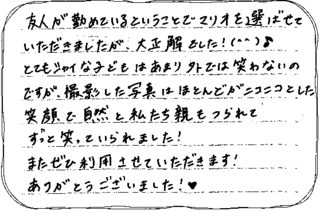 友人が勤めているということでマリオを選ばせて
いただきましたが、大正解でした!(^^)♪
とてもシャイな子どもはあまり外では笑わないの
ですが、撮影した写真はほとんどがニコニコとした
笑顔で自然と私たち親もつられて
ずっと笑っていられました!
またぜひ利用させていただきます!
ありがとうございました!♥